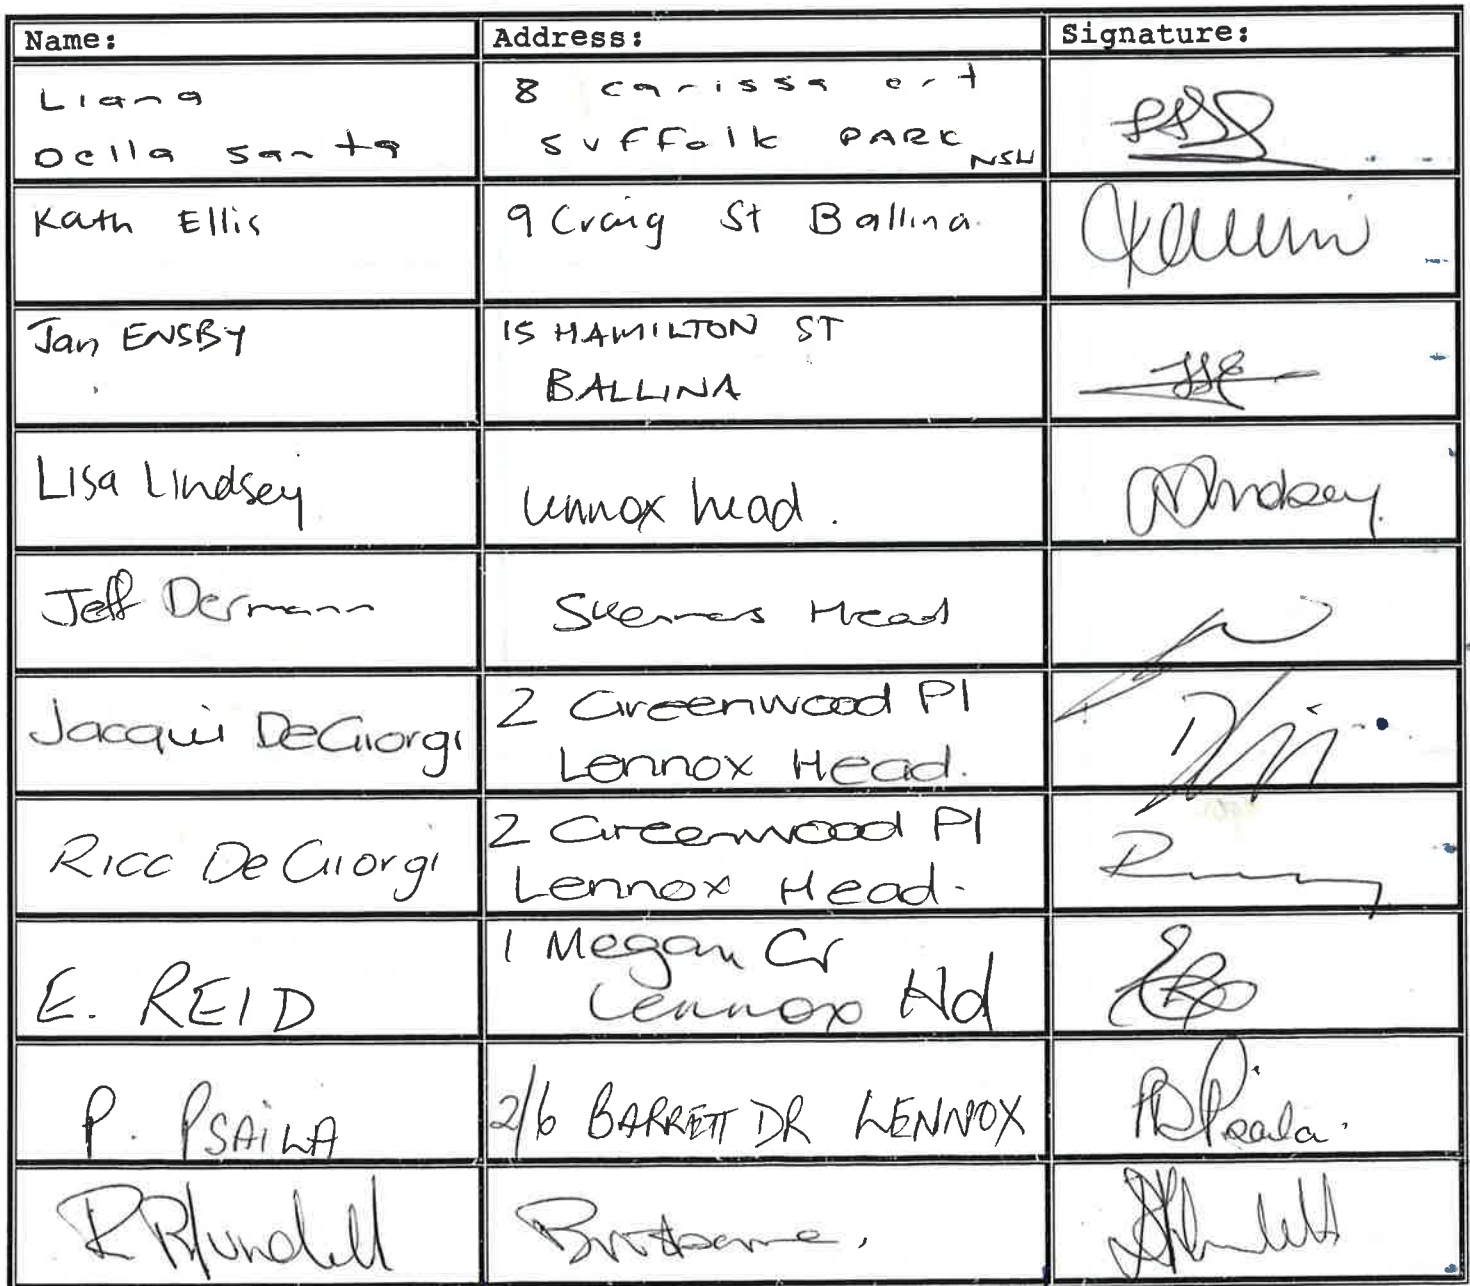 Name: Address: Signature:
Liana
Della Santa
8 carissa crt
Suffolk PARK NSW
Kath Ellis
9 Craig St Ballina.
Jan ENSBY
15 HAMILTON ST
BALLINA
Lisa Lindsey
Lennox head.
Lindsey
Jeff Dermann
Skennars Head
Jacqui DeGiorgi
2 Greenwood Pl
Lennox Head.
Ricc De Giorgi
2 Greenwood Pl
Lennox Head.
E. REID
1 Megan Cr
Lennox Hd
P. PSAILA
2/6 BARRETT DR LENNOX
Psaila.
R Blundell
Brisbane,